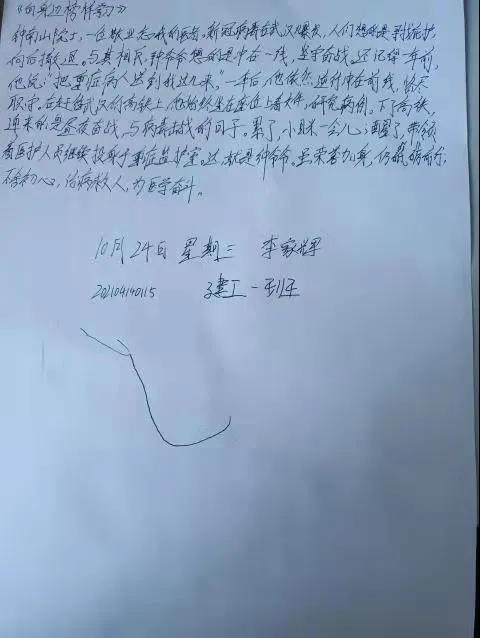 《向身边榜样学习》
钟南山院士，一位敬业忘我的医者。新冠病毒在武汉爆发，人们想的是寻找庇护，
向后撤退。与其相反，钟爷爷想的是冲在一线，坚守奋战。还记得一年前，
他说："把重症病人送到我这儿来。"一年后，他依然逆行冲在前线，恪尽
职守。在赶往武汉的高铁上，他始终坐在座位上看文件，研究病例。下了高铁，
迎来的是昼夜奋战，与病毒抗战的日子。累了，小眯一会儿；醒了，带领
着医护人员继续投身于重症监护室。这就是钟爷爷，虽荣誉加身，仍砥砺前行，
不忘初心，治病救人，为医学奋斗。
10月24日 星期三 李家辉
202104140115 建工一班